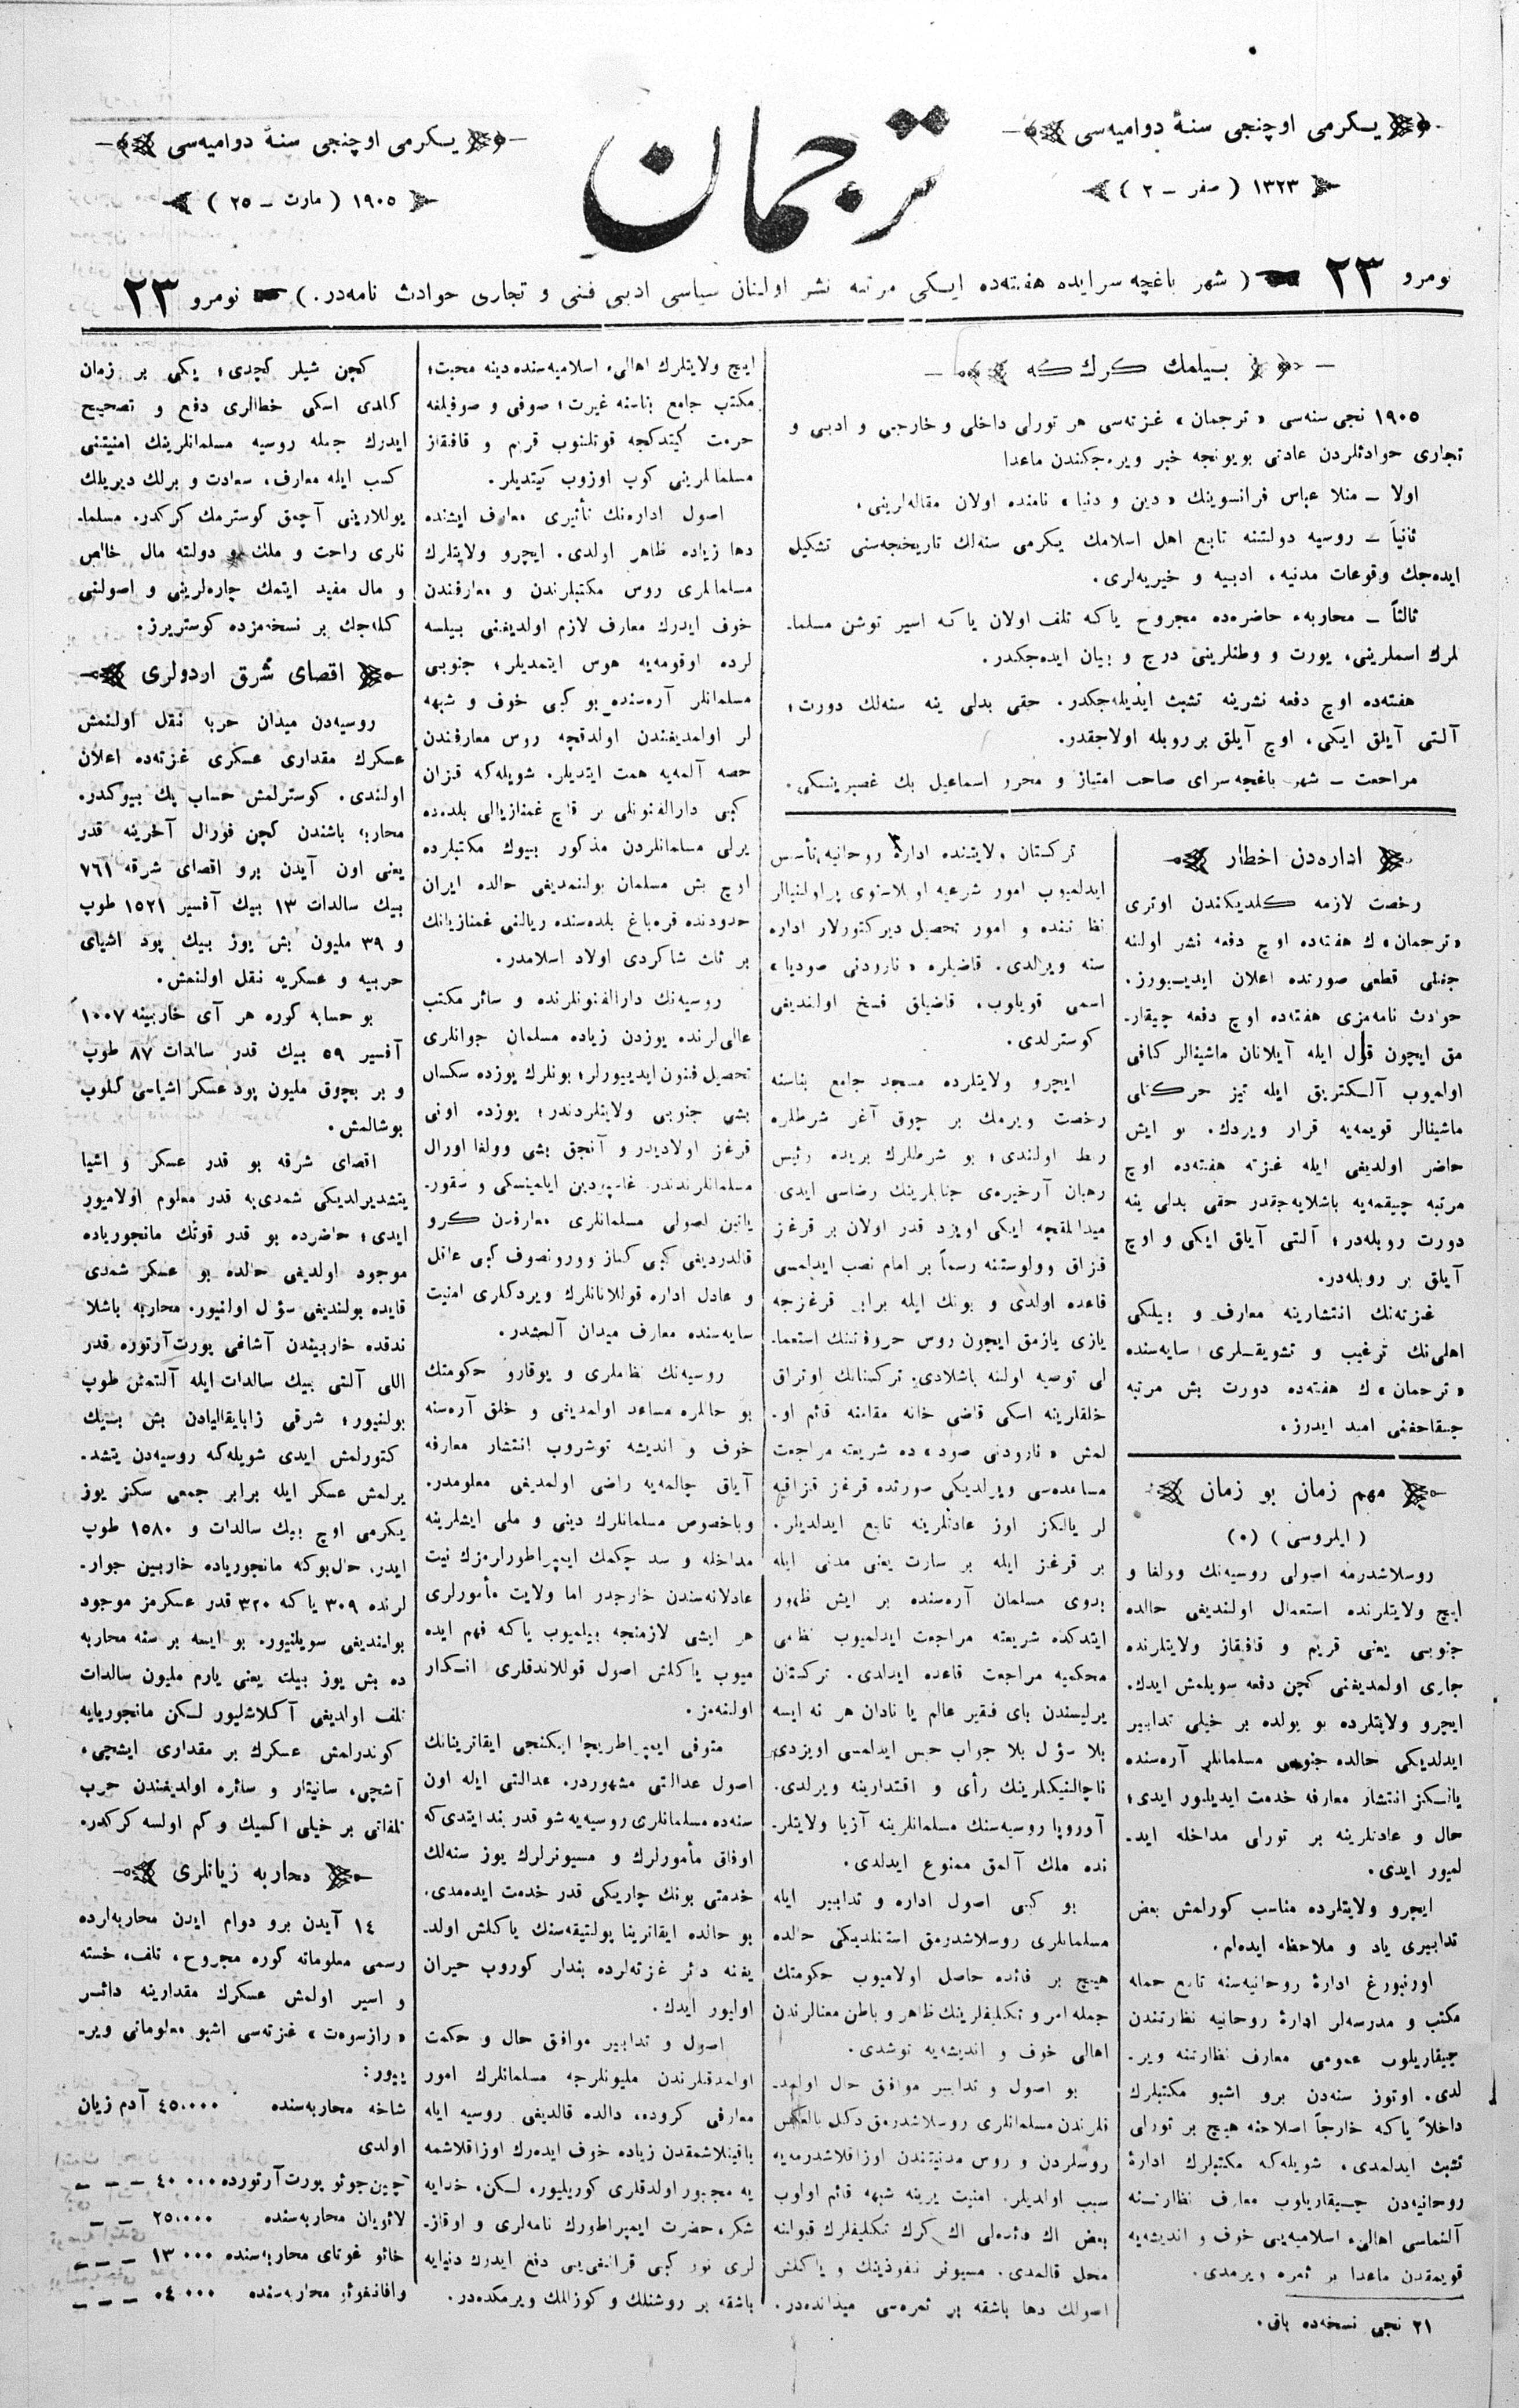 يكرمی اوچنجی سنۀ دواميه‌سی
١٣٢٣ ( صفر ـ ٢ )
ترجمان
يكرمی اوچنجی سنۀ دواميه‌سی
١٩٠٥ ( مارت ـ ٢٥ )
نومرو ٢٣ ( شهر باغچه سرايده هفته‌ده ايكی مرتبه نشر اولنان سياسی ادبی فنی و تجاری حوادث نامه‌در. ) نومرو ٢٣
بيلمك كرك كه
١٩٠٥ نجی سنه‌سی « ترجمان » غزته‌سی هر تورلی داخلی و خارجی و ادبی و
تجاری حوادثلردن عادتی بويونجه خبر ويره‌جكندن ماعدا
اولا ـ منلا عباس فرانسوينك « دين و دنيا » نامنده اولان مقاله‌لرينی،
ثانياً ـ روسيه دولتنه تابع اهل اسلامك يكرمی سنه‌لك تاريخجه‌سنی تشكيل
ايده‌جك وقوعات مدنيه، ادبيه و خيريه‌لری.
ثالثاً ـ محاربه‌ء حاضره‌ده مجروح ياكه تلف اولان ياكه اسير توشن مسلما‌ـ
نلرك اسملرينی، يورت و وطنلرينی درج و بيان ايده‌جكدر.
هفته‌ده اوچ دفعه نشرينه تشبث ايديله‌جكدر. حقی بدلی ينه سنه‌لك دورت؛
آلتی آيلق ايكی، اوچ آيلق بر روبله اولاجقدر.
مراجعت ـ شهر باغچه‌سرای صاحب امتياز و محرر اسماعيل بك غصپرينسكی.
اداره‌دن اخطار
رخصت لازمه كلديكندن اوتری
« ترجمان » ك هفته‌ده اوچ دفعه نشر اولنه
جغنی قطعی صورتده اعلان ايديـيورز.
حوادث نامه‌مزی هفته‌ده اوچ دفعه چيقارـ
مق ايچون قول ايله آيلانان ماشينالر كافی
اولميوب آلكتريق ايله تيز حركتلی
ماشينالر قويمه‌يه قرار ويردك. بو ايش
حاضر اولديغی ايله غزته هفته‌ده اوچ
مرتبه چيقمه‌يه باشلايه‌جقدر حقی بدلی ينه
دورت روبله‌در؛ آلتی آيلق ايكی و اوچ
آيلق بر روبله‌در.
غزته‌نك انتشارينه معارف و بيلكی
اهلی‌نك ترغيب و تشويقـلری سايه‌سنده
« ترجمان » ك هفته‌ده دورت بش مرتبه
چيقاجغنی اميد ايدرز.
مهم زمان بو زمان
( ايلروسی ) (٠)
روسلاشدرمه اصولی روسيه‌نك وولغا و
ايچ ولايتلرنده استعمال اولنديغی حالده
جنوبی يعنی قريم و قافقاز ولايتلرنده
جاری اولمديغنی كچن دفعه سويلمش ايدك.
ايچرو ولايتلرده بو يولده بر خيلی تدابير
ايدلديكی حالده جنوبی مسلمانلر آره‌سنده
يالكز انتشار معارفه خدمت ايديليور ايدی؛
حال و عادتلرينه بر تورلی مداخله ايدـ
لميور ايدی.
ايچرو ولايتلرده مناسب كورلمش بعض
تدابيری ياد و ملاحظه ايده‌لم.
اورنبورغ ادارۀ روحانيه‌سنه تابع جمله
مكتب و مدرسه‌لر ادارۀ روحانيه نظارتندن
چيقاريلوب عمومی معارف نظارتنه ويرـ
لدی. اوتوز سنه‌دن برو اشبو مكتبلرك
داخلاً ياكه خارجاً اصلاحنه هيچ بر تورلی
تشبث ايدلمدی. شويله‌كه مكتبلرك ادارۀ
روحانيه‌دن چـيقاريلوب معارف نظارتـنه
آلنماسی اهالیء اسلاميه‌يی خوف و انديشه‌يه
قويمقدن ماعدا بر ثمره ويرمدی.
٢١ نجی نسخه‌ده باق.
تركستان ولايتنده ادارۀ روحانيه تأسيس
ايدلميوب امور شرعيه اوبلاستنوی پراولنيالر
نظارتنده و امور تحصيل ديركتورلار اداره
سنه ويرلدی. قاضيلره « نارودنی صوديا »
اسمی قويلوب، قاضيلق فسخ اولنديغی
كوسترلدی.
ايچرو ولايتلرده مسجد جامع بناسنه
رخصت ويرمك بر چوق آغر شرطلره
ربط اولندی؛ بو شرطلرك بريده رئيس
رهبان آرخيره‌ی جنابلرينك رضاسی ايدی.
ميدالمقچه ايكی اويزد قدر اولان بر قرغز
قزاق وولوستنه رسماً بر امام نصب ايدلمسی
قاعده اولدی و بونك ايله برابر قرغزجه
يازی يازمق ايچون روس حروفتنك استعماـ
لی توصيه اولنه باشلادی. تركستانك اوتراق
خلقلرينه اسكی قاضی خانه مقامنه قائم اوـ
لمش « نارودنی صود » ده شريعته مراجعت
مساعده‌سی ويرلديكی صورتده قرغز قزاقيه
لر يالكز اوز عادتلرينه تابع ايدلديلر.
بر قرغز ايله بر سارت يعنی مدنی ايله
بدوی مسلمان آره‌سنده بر ايش ظهور
ايتدكده شريعته مراجعت ايدلميوب نظامی
محكميه مراجعت قاعده ايدلدی. تركستان
يرليسندن بای فقير عالم يا نادان هر نه ايسه
بلا سؤل بلا جواب حبس ايدلمسی اويزدی
ناچالنيكلرينك رأی و اقتدارينه ويرلدی.
آوروپا روسيه‌سنك مسلمانلرينه آزيا ولايتلرـ
نده ملك آلمق ممنوع ايدلدی.
بو كبی اصول اداره و تدابير ايله
مسلمانلری روسلاشدرمق استنلديكی حالده
هيچ بر فائده حاصل اولاميوب حكومتك
جمله امر و تكليفلرينك ظاهر و باطن معنالرندن
اهالی خوف و انديشه‌يه توشدی.
بو اصول و تدابير موافق حال اولمدـ
قلرندن مسلمانلری روسلاشدرمق دكل بالعكس
روسلردن و روس مدنيتندن اوزاقلاشدرمه‌يه
سبب اولديلر. امنيت يرينه شبهه قائم اولوب
بعض اك فائده‌لی اك كرك تكليفلرك قبولنه
محل قالمدی. مسيونر نفوذينك و ياكلش
اصولك دها باشقه بر ثمره‌سی ميدانده‌در.
ايچ ولايتلرك اهالیء اسلاميه‌سنده دينه محبت؛
مكتب جامع بناسنه غيرت؛ صوفی و صوفيلغه
حرمت كيتدكجه قوتلنوب قريم و قافقاز
مسلمانلرينی كوپ اوزوب كيتديلر.
اصول اداره‌نك تأثيری معارف ايشنده
دها زياده ظاهر اولدی. ايچرو ولايتلرك
مسلمانلری روس مكتبلرندن و معارفندن
خوف ايدرك معارف لازم اولديغنی بيلسه
لرده اوقومه‌يه هوس ايتمديلر؛ جنوبی
مسلمانلر آره‌سنده بو كبی خوف و شبهه
لر اولمديغندن اولدقچه روس معارفندن
حصه آلمه‌يه همت ايتديلر. شويله‌كه قزان
كبی دارالفنونلی بر قاچ غمنازيالی بلده‌ده
يرلی مسلمانلردن مذكور بيوك مكتبلرده
اوچ بش مسلمان بولنمديغی حالده ايران
حدودنده قره‌باغ بلده‌سنده ريالنی غمنازيانك
بر ثلث شاكردی اولاد اسلامدر.
روسيه‌نك دارالفنونلرنده و سائر مكتب
عالی‌لرنده يوزدن زياده مسلمان جوانلری
تحصيل فنون ايدييورلر؛ بونلرك يوزده سكسان
بشی جنوبی ولايتلردندر؛ يوزده اونی
قرغز اولاديدر و آنجق بشی وولغا اورال
مسلمانلرندندر. غاسپودين ايلمينسكی و سقورـ
يانين اصولی مسلمانلری معارفدن كرو
قالدرديغی كبی كناز وورونصوف كبی عاقل
و عادل اداره قوللانانلرك ويردكلری امنيت
سايه‌سنده معارف ميدان آلمشدر.
روسيه‌نك نظاملری و يوقارو حكومتك
بو حاللره مساعد اولمديغی و خلق آره‌سنه
خوف و انديشه توشروب انتشار معارفه
آياق چالمه‌يه راضی اولمديغی معلومدر.
وباخصوص مسلمانلرك دينی و ملی ايشلرينه
مداخله و سد چكمك ايمپراطورلرمزك نيت
عادلانه‌سندن خارجدر اما ولايت مأمورلری
هر ايشی لازمنجه بيلميوب ياكه فهم ايده
ميوب ياكلش اصول قوللاندقلری انـكار
اولنه‌مز.
متوفی ايمپراطريچا ايكنجی ايقاترينانك
اصول عدالتی مشهوردر. عدالتی ايله اون
سنه‌ده مسلمانلری روسيه‌يه شو قدر بند ايتدی كه
اوفاق مأمورلرك و مسيونرلرك يوز سنه‌لك
خدمتی بونك چاريكی قدر خدمت ايده‌مدی.
بو حالده ايقاترينا پولتيقه‌سنك ياكلش اولدـ
يغنه دائر غزته‌لرده بندلر كوروب حيران
اوليور ايدك.
اصول و تدابير موافق حال و حكمت
اولمدقلرندن مليونلرجه مسلمانلرك امور
معارفی كروده، دالده قالديغی روسيه ايله
ياقينلاشمقدن زياده خوف ايده‌رك اوزاقلاشمه
يه مجبور اولدقلری كوريليور. لـكن، خدايه
شكر، حضرت ايمپراطورك نامه‌لری و اوقازـ
لری نور كبی قرانغی‌يی دفع ايدرك دنيايه
باشقه بر روشنلك و كوزللك ويرمكده‌در.
كچن شيلر كچدی؛ يكی بر زمان
كلدی اسكی خطالری دفع و تصحيح
ايدرك جمله روسيه مسلمانلرينك امنيتنی
كسب ايله معارف، سعادت و برلك ديريلك
يوللارينی آچمق كوسترمك كركدر. مسلماـ
نلری راحت و ملك و دولته مال خالص
و مال مفيد ايتمك چاره‌لرينی و اصولنی
كله‌جك بر نسخه‌مزده كوستريرز.
اقصای شرق اردولری
روسيه‌دن ميدان حربه نقل اولنمش
عسكرك مقداری عسكری غزته‌ده اعلان
اولندی. كوسترلمش حساب پك بيوكدر.
محاربه باشندن كچن فورال آخرينه قدر
يعنی اون آيدن برو اقصای شرقه ٧٦١
بيك سالدات ١٣ بيك آفسير ١٥٢١ طوپ
و ٣٩ مليون بش يوز بيك پود اشيای
حربيه و عسكريه نقل اولنمش.
بو حسابه كوره هر آی خاربينه ١٠٠٧
آفسير ٥٩ بيك قدر سالدات ٨٧ طوپ
و بر بچوق مليون پود عسكر اشياسی كلوب
بوشالمش.
اقصای شرقه بو قدر عسكر و اشيا
يتشديرلديكی شمدی‌يه قدر معلوم اولاميور
ايدی؛ حاضرده بو قدر قوتك مانجورياده
موجود اولديغی حالده بو عسكر شمدی
قايده بولنديغی سؤل اولنيور. محاربه باشلا
ندقده خاربيندن آشاغی پورت‌آرتوره قدر
اللی آلتی بيك سالدات ايله آلتمش طوپ
بولنيور؛ شرقی زابايقاليادن بش بـيك
كتورلمش ايدی شويله‌كه روسيه‌دن يتشدـ
يرلمش عسكر ايله برابر جمعی سكز يوز
يكرمی اوچ بيك سالدات و ١٥٨٠ طوپ
ايدر. حال‌بوكه مانجورياده خاربين جوارـ
لرنده ٣٠٩ ياكه ٣٢٠ قدر عسكرمز موجود
بولنديغی سويلنيور. بو ايسه بر سنه محاربه
ده بش يوز بيك يعنی يارم مليون سالدات
تلف اولديغی آكلاشليور لـكن مانجوريايه
كوندرلمش عسكرك بر مقداری ايشجی،
آشجی، سانيتار و سائره اولديغندن حرب
تلفاتی بر خيلی اكسيك و كم اولسه كركدر.
محاربه زيانلری
١٤ آيدن برو دوام ايدن محاربه‌لرده
رسمی معلوماته كوره مجروح، تلف، خسته
و اسير اولمش عسكرك مقدارينه دائـر
« رازسوه‌ت » غزته‌سی اشبو معلوماتی ويرـ
ييور:
شاخه محاربه‌سنده ٤٥٠٠٠٠ آدم زيان
اولدی
چين‌جوئو پورت آرتورده ٤٠٠٠٠ ـ ـ ـ
لائويان محاربه‌سنده ٢٥٠٠٠ ـ ـ
خائو غوتای محاربه‌سنده ١٣٠٠٠ ـ ـ ـ
وافانغوئو محاربه‌سنده ٠٤٠٠٠ ـ ـ ـ